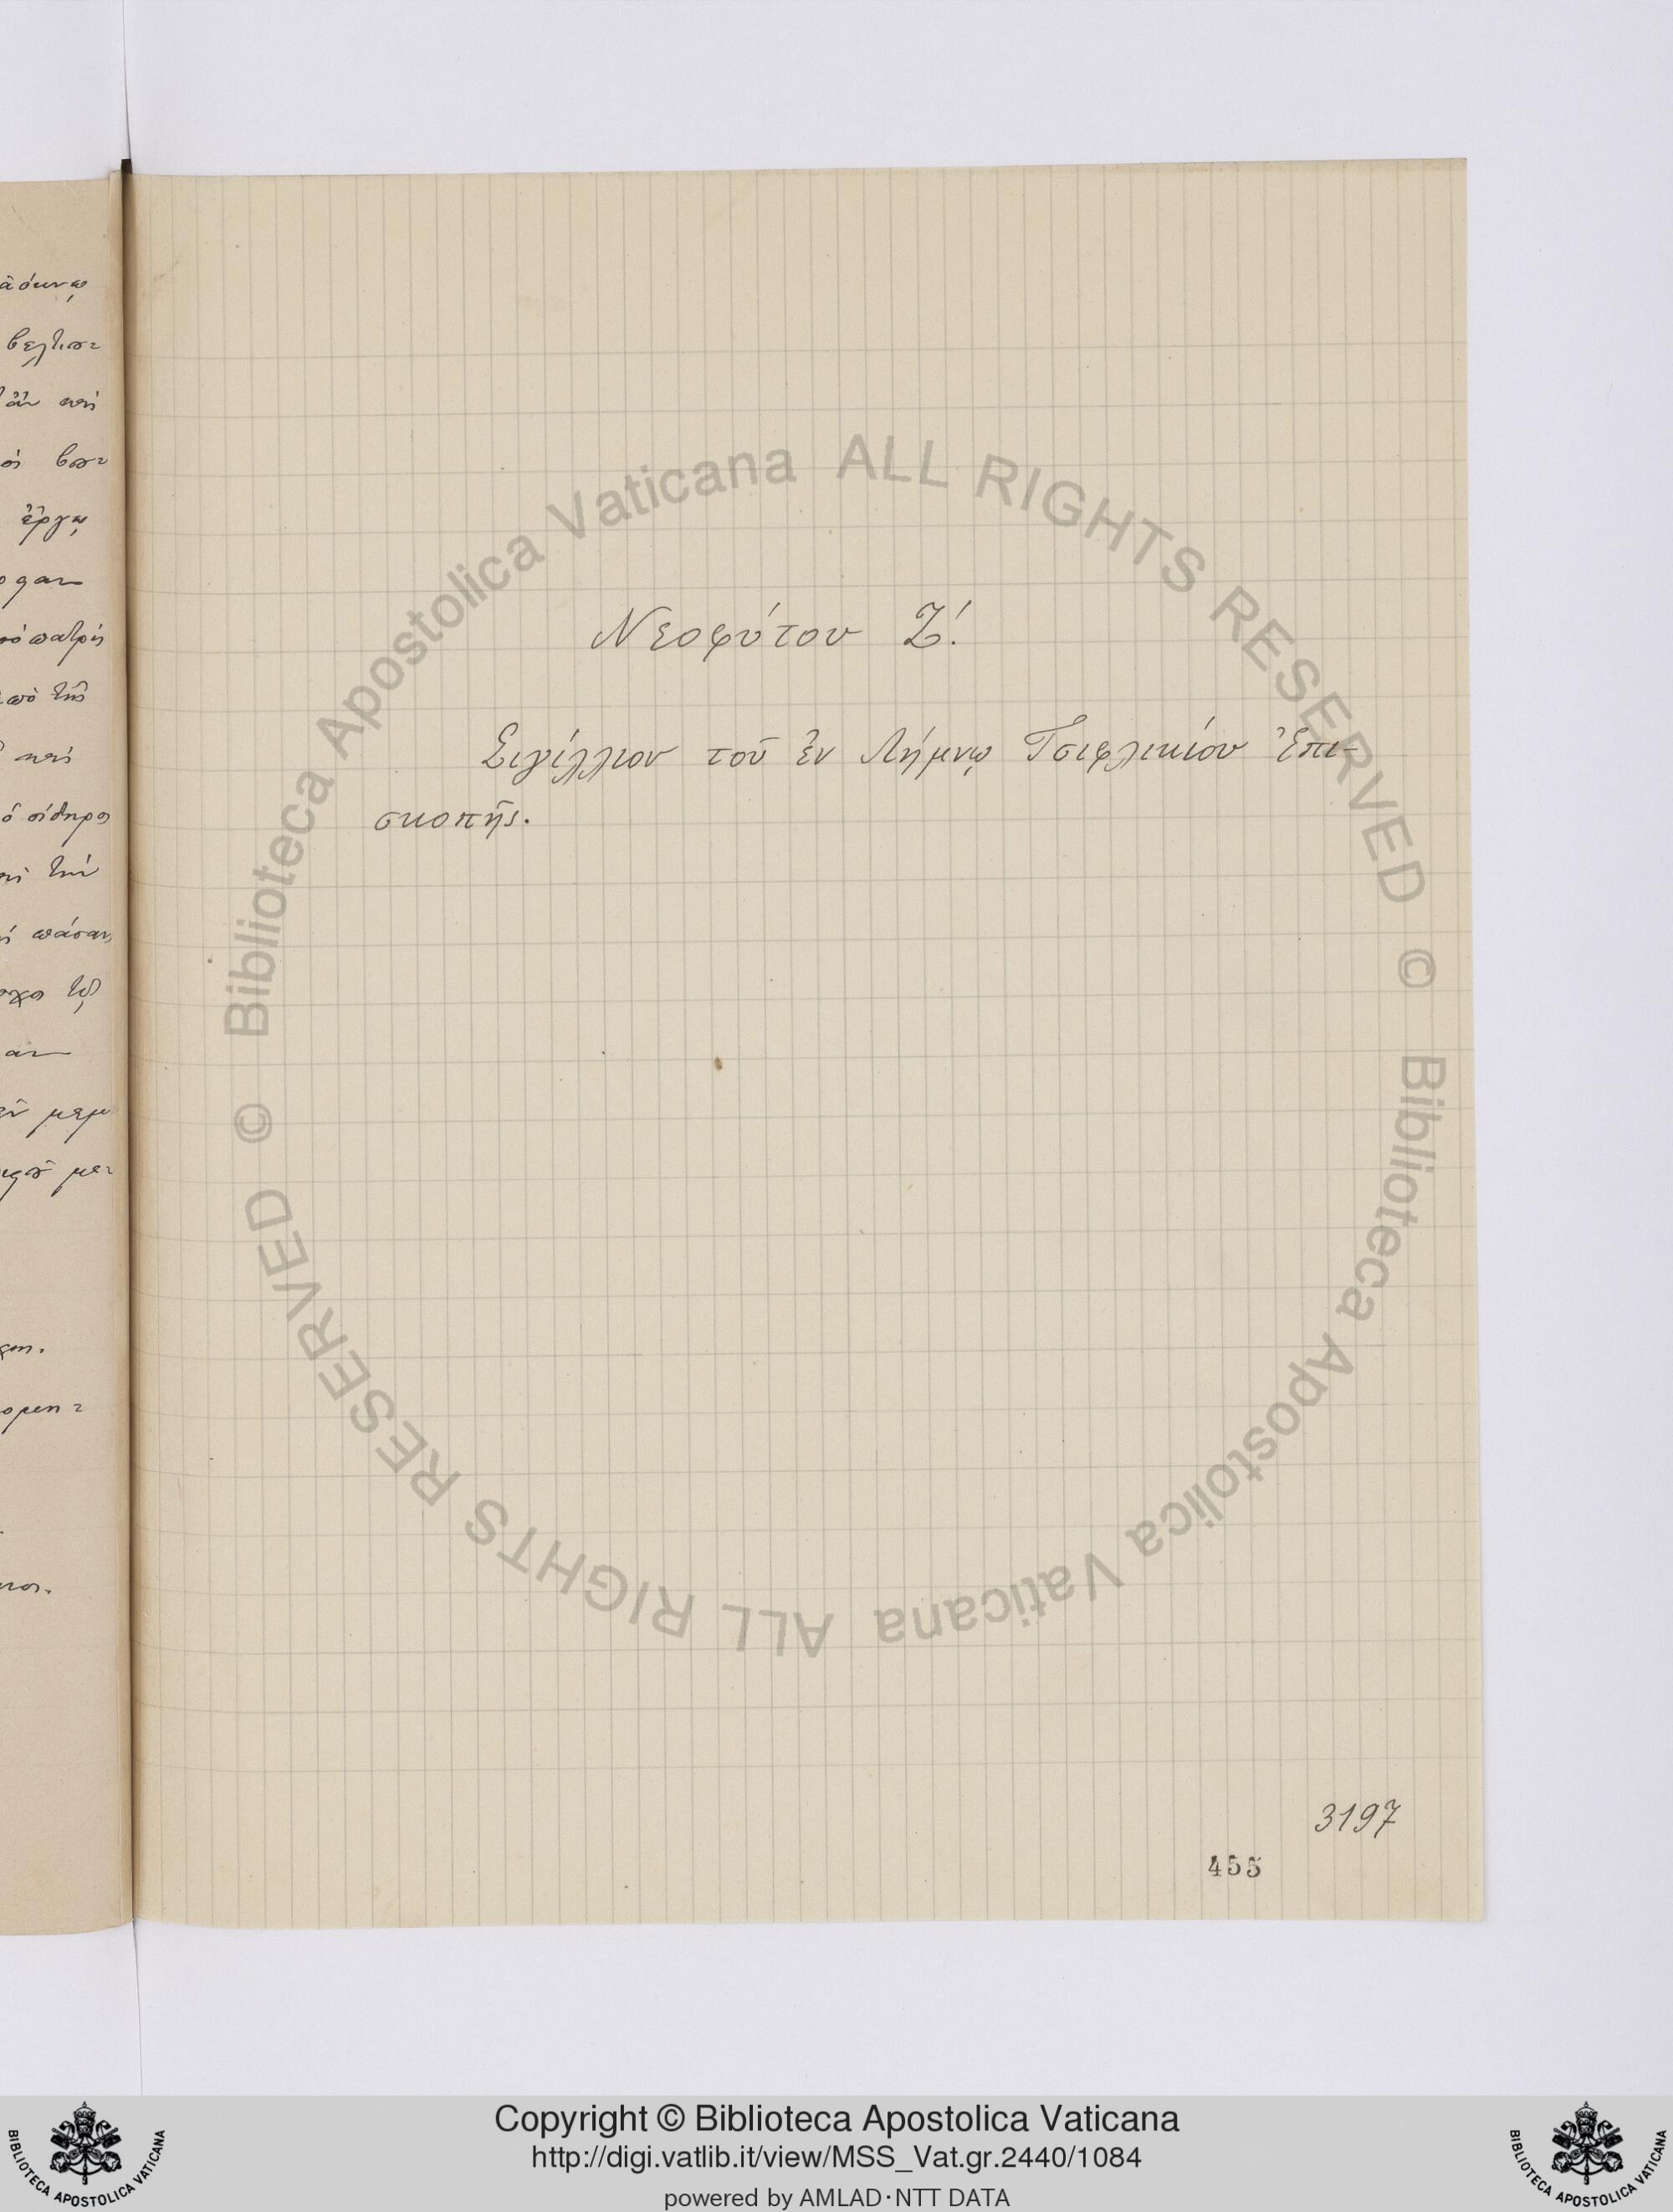 Νεοφύτου Ζ΄.
Σιγίλλιον τοῦ ἐν Λήμνῳ Τσιφλικίου Ἐπι-
σκοπῆς.
3197
455
ἀόκνῳ
βελτιω
ἂν καὶ
ἔργῳ
ἀπὸ τῆς
καὶ
ὁ σίδηρος
τὴν
πάσαν
© Biblioteca Apostolica Vaticana ALL RIGHTS RESERVED
© Biblioteca Apostolica Vaticana ALL RIGHTS RESERVED
Copyright © Biblioteca Apostolica Vaticana
http://digi.vatlib.it/view/MSS_Vat.gr.2440/1084
powered by AMLAD·NTT DATA
BIBLIOTECA APOSTOLICA VATICANA
BIBLIOTECA APOSTOLICA VATICANA